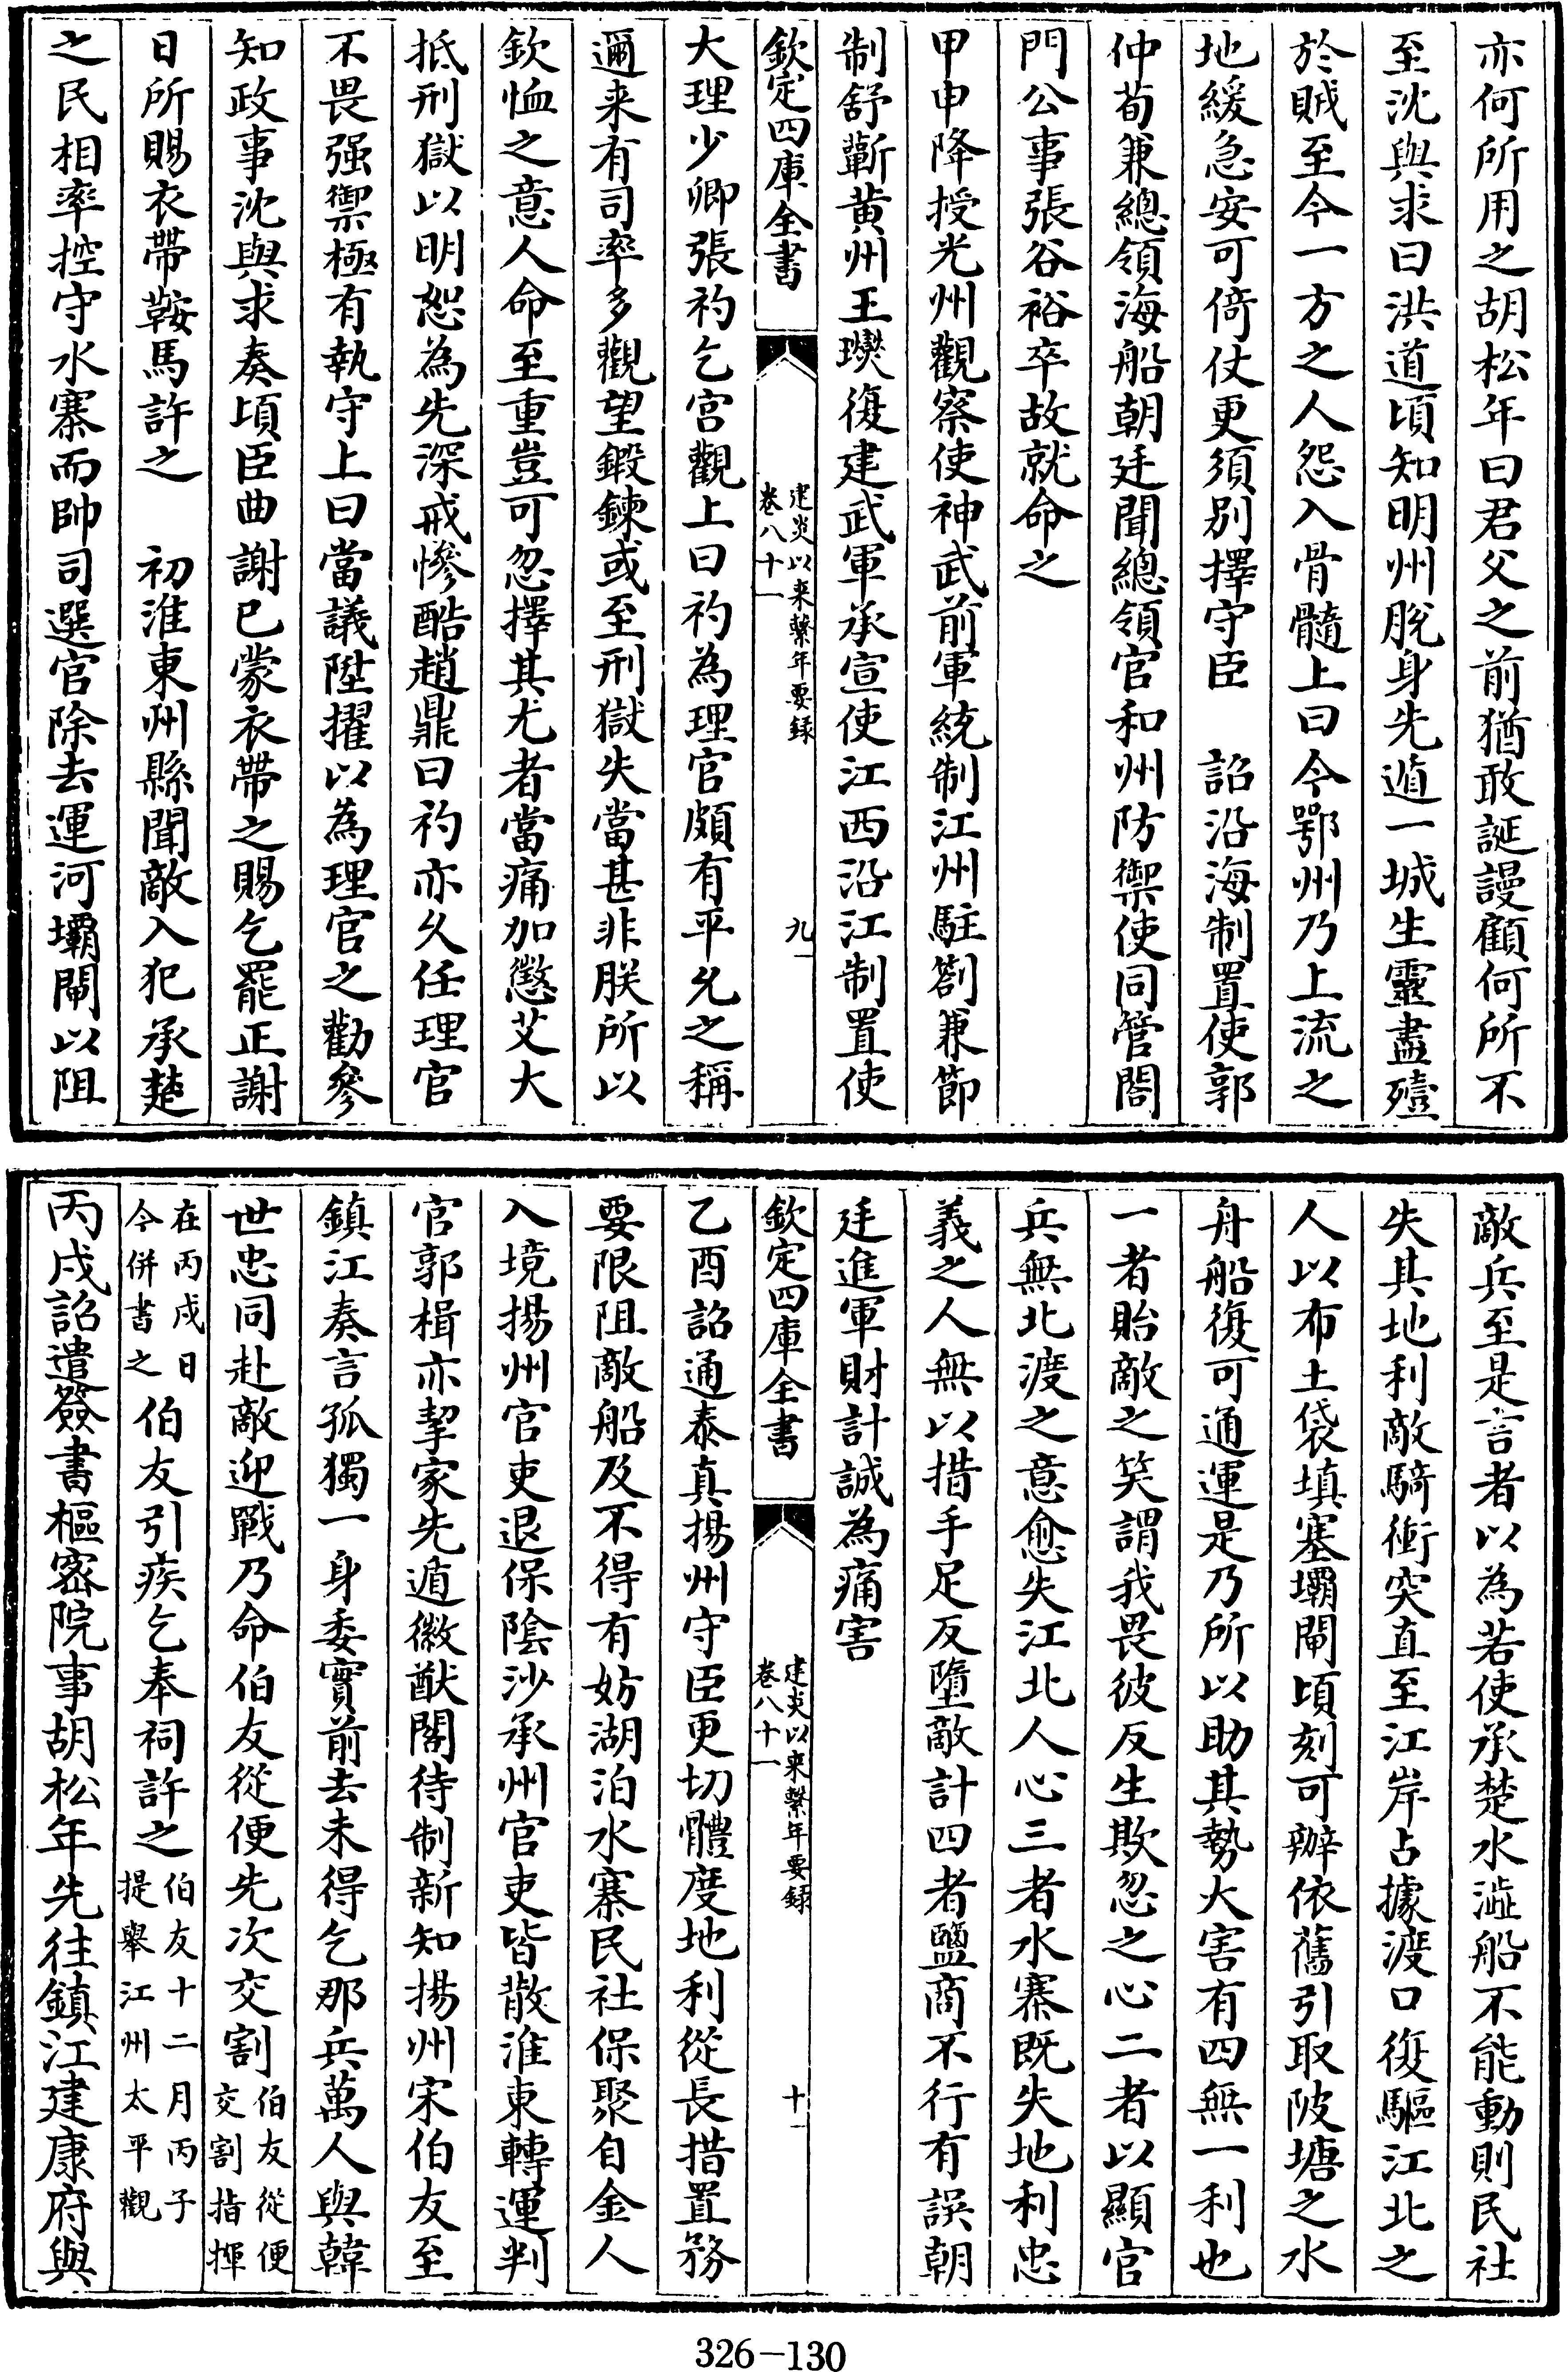 亦何所用之胡松年曰君父之前猶敢誕謾顧何所不
至沈與求曰洪道頃知明州脫身先遁一城生靈盡殪
於賊至今一方之人怨入骨髓上曰今鄂州乃上流之
地緩急安可倚仗更須別擇守臣　詔沿海制置使郭
仲荀兼總領海船朝廷聞總領官和州防禦使同管閤
門公事張谷裕卒故就命之
甲申降授光州觀察使神武前軍統制江州駐劄兼節
制舒蘄黄州王𤫉復建武軍承宣使江西沿江制置使
欽定四庫全書
建炎以来繫年要録
卷八十一
九
大理少卿張礿乞宫觀上曰礿為理官頗有平允之稱
邇来有司率多觀望鍛鍊或至刑獄失當甚非朕所以
欽恤之意人命至重豈可忽擇其尤者當痛加懲艾大
抵刑獄以明恕為先深戒慘酷趙鼎曰礿亦久任理官
不畏强禦極有執守上曰當議陞擢以為理官之勸參
知政事沈與求奏頃臣曲謝已蒙衣帶之賜乞罷正謝
日所賜衣帶鞍馬許之　初淮東州縣聞敵入犯承楚
之民相率控守水寨而帥司選官除去運河壩閘以阻
敵兵至是言者以為若使承楚水澁船不能動則民社
失其地利敵騎衝突直至江岸占據渡口復驅江北之
人以布土袋填塞壩閘頃刻可辦依舊引取陂塘之水
舟船復可通運是乃所以助其勢大害有四無一利也
一者貽敵之笑謂我畏彼反生欺忽之心二者以顯官
兵無北渡之意愈失江北人心三者水寨既失地利忠
義之人無以措手足反墮敵計四者鹽商不行有誤朝
廷進軍財計誠為痛害
欽定四庫全書
建炎以来繫年要録
卷八十一
十
乙酉詔通泰真揚州守臣更切體度地利從長措置務
要限阻敵船及不得有妨湖泊水寨民社保聚自金人
入境揚州官吏退保陰沙承州官吏皆散淮東轉運判
官郭楫亦挈家先遁徽猷閣待制新知揚州宋伯友至
鎮江奏言孤獨一身委實前去未得乞那兵萬人與韓
世忠同赴敵迎戰乃命伯友從便先次交割伯友從便交割指揮
在丙戌日今併書之伯友引疾乞奉祠許之伯友十二月丙子提舉江州太平觀
丙戌詔遣簽書樞密院事胡松年先往鎮江建康府與
326-130